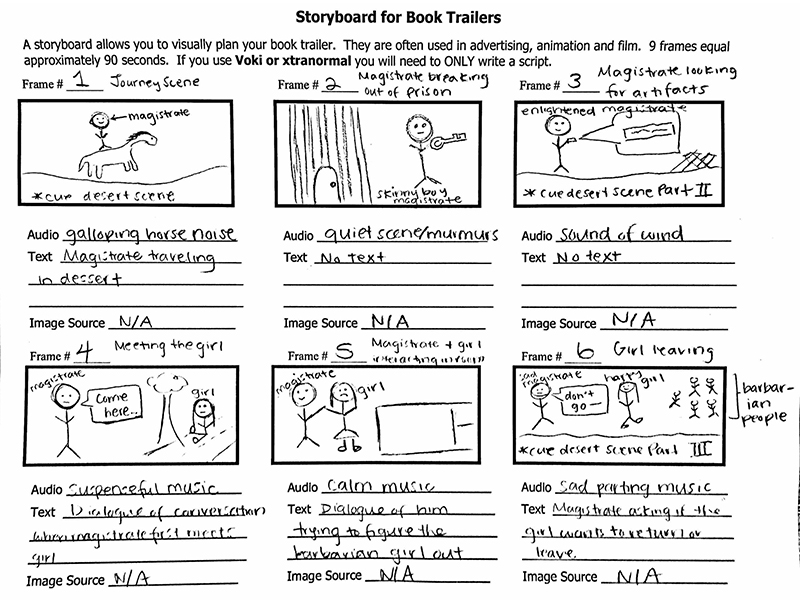 Storyboard for Book Trailers
A storyboard allows you to visually plan your book trailer. They are often used in advertising, animation and film. 9 frames equal
approximately 90 seconds. If you use Voki or xtranormal you will need to ONLY write a script.
Frame # 1 Journey Scene
magistrate
*cue desert scene
Audio galloping horse noise
Text Magistrate traveling
in dessert
Image Source N/A
Frame # 2 Magistrate breaking
out of prison
skinny boy
magistrate
Audio quiet scene/murmurs
Text No text
Image Source N/A
Frame # 3 Magistrate looking
for artifacts
enlightened magistrate
*cue desert scene Part II
Audio Sound of wind
Text No text
Image Source N/A
Frame # 4 Meeting the girl
magistrate
Come
here..
girl
Audio Suspenseful music
Text Dialogue of conversation
when magistrate first meets
girl
Image Source N/A
Frame # 5 Magistrate + girl
interacting in
magistrate
girl
Audio Calm music
Text Dialogue of him
trying to figure the
barbarian girl out
Image Source N/A
Frame # 6 Girl leaving
sad
magistrate
don't
go—
happy
girl
barbar-
ian
people
*cue desert scene Part III
Audio Sad parting music
Text Magistrate asking if the
girl wants to return or
leave.
Image Source N/A